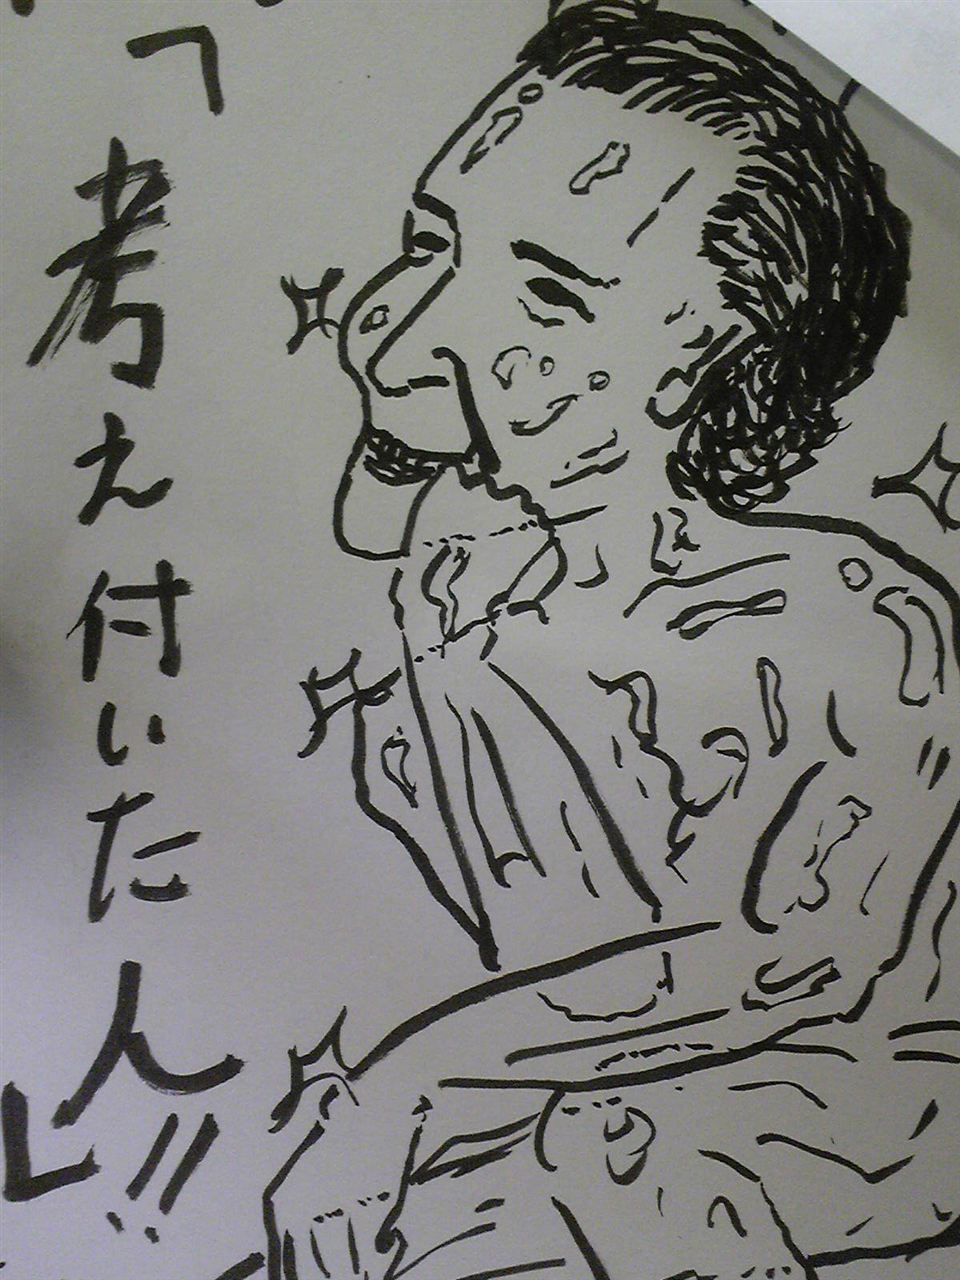 「考え付いたん!!」